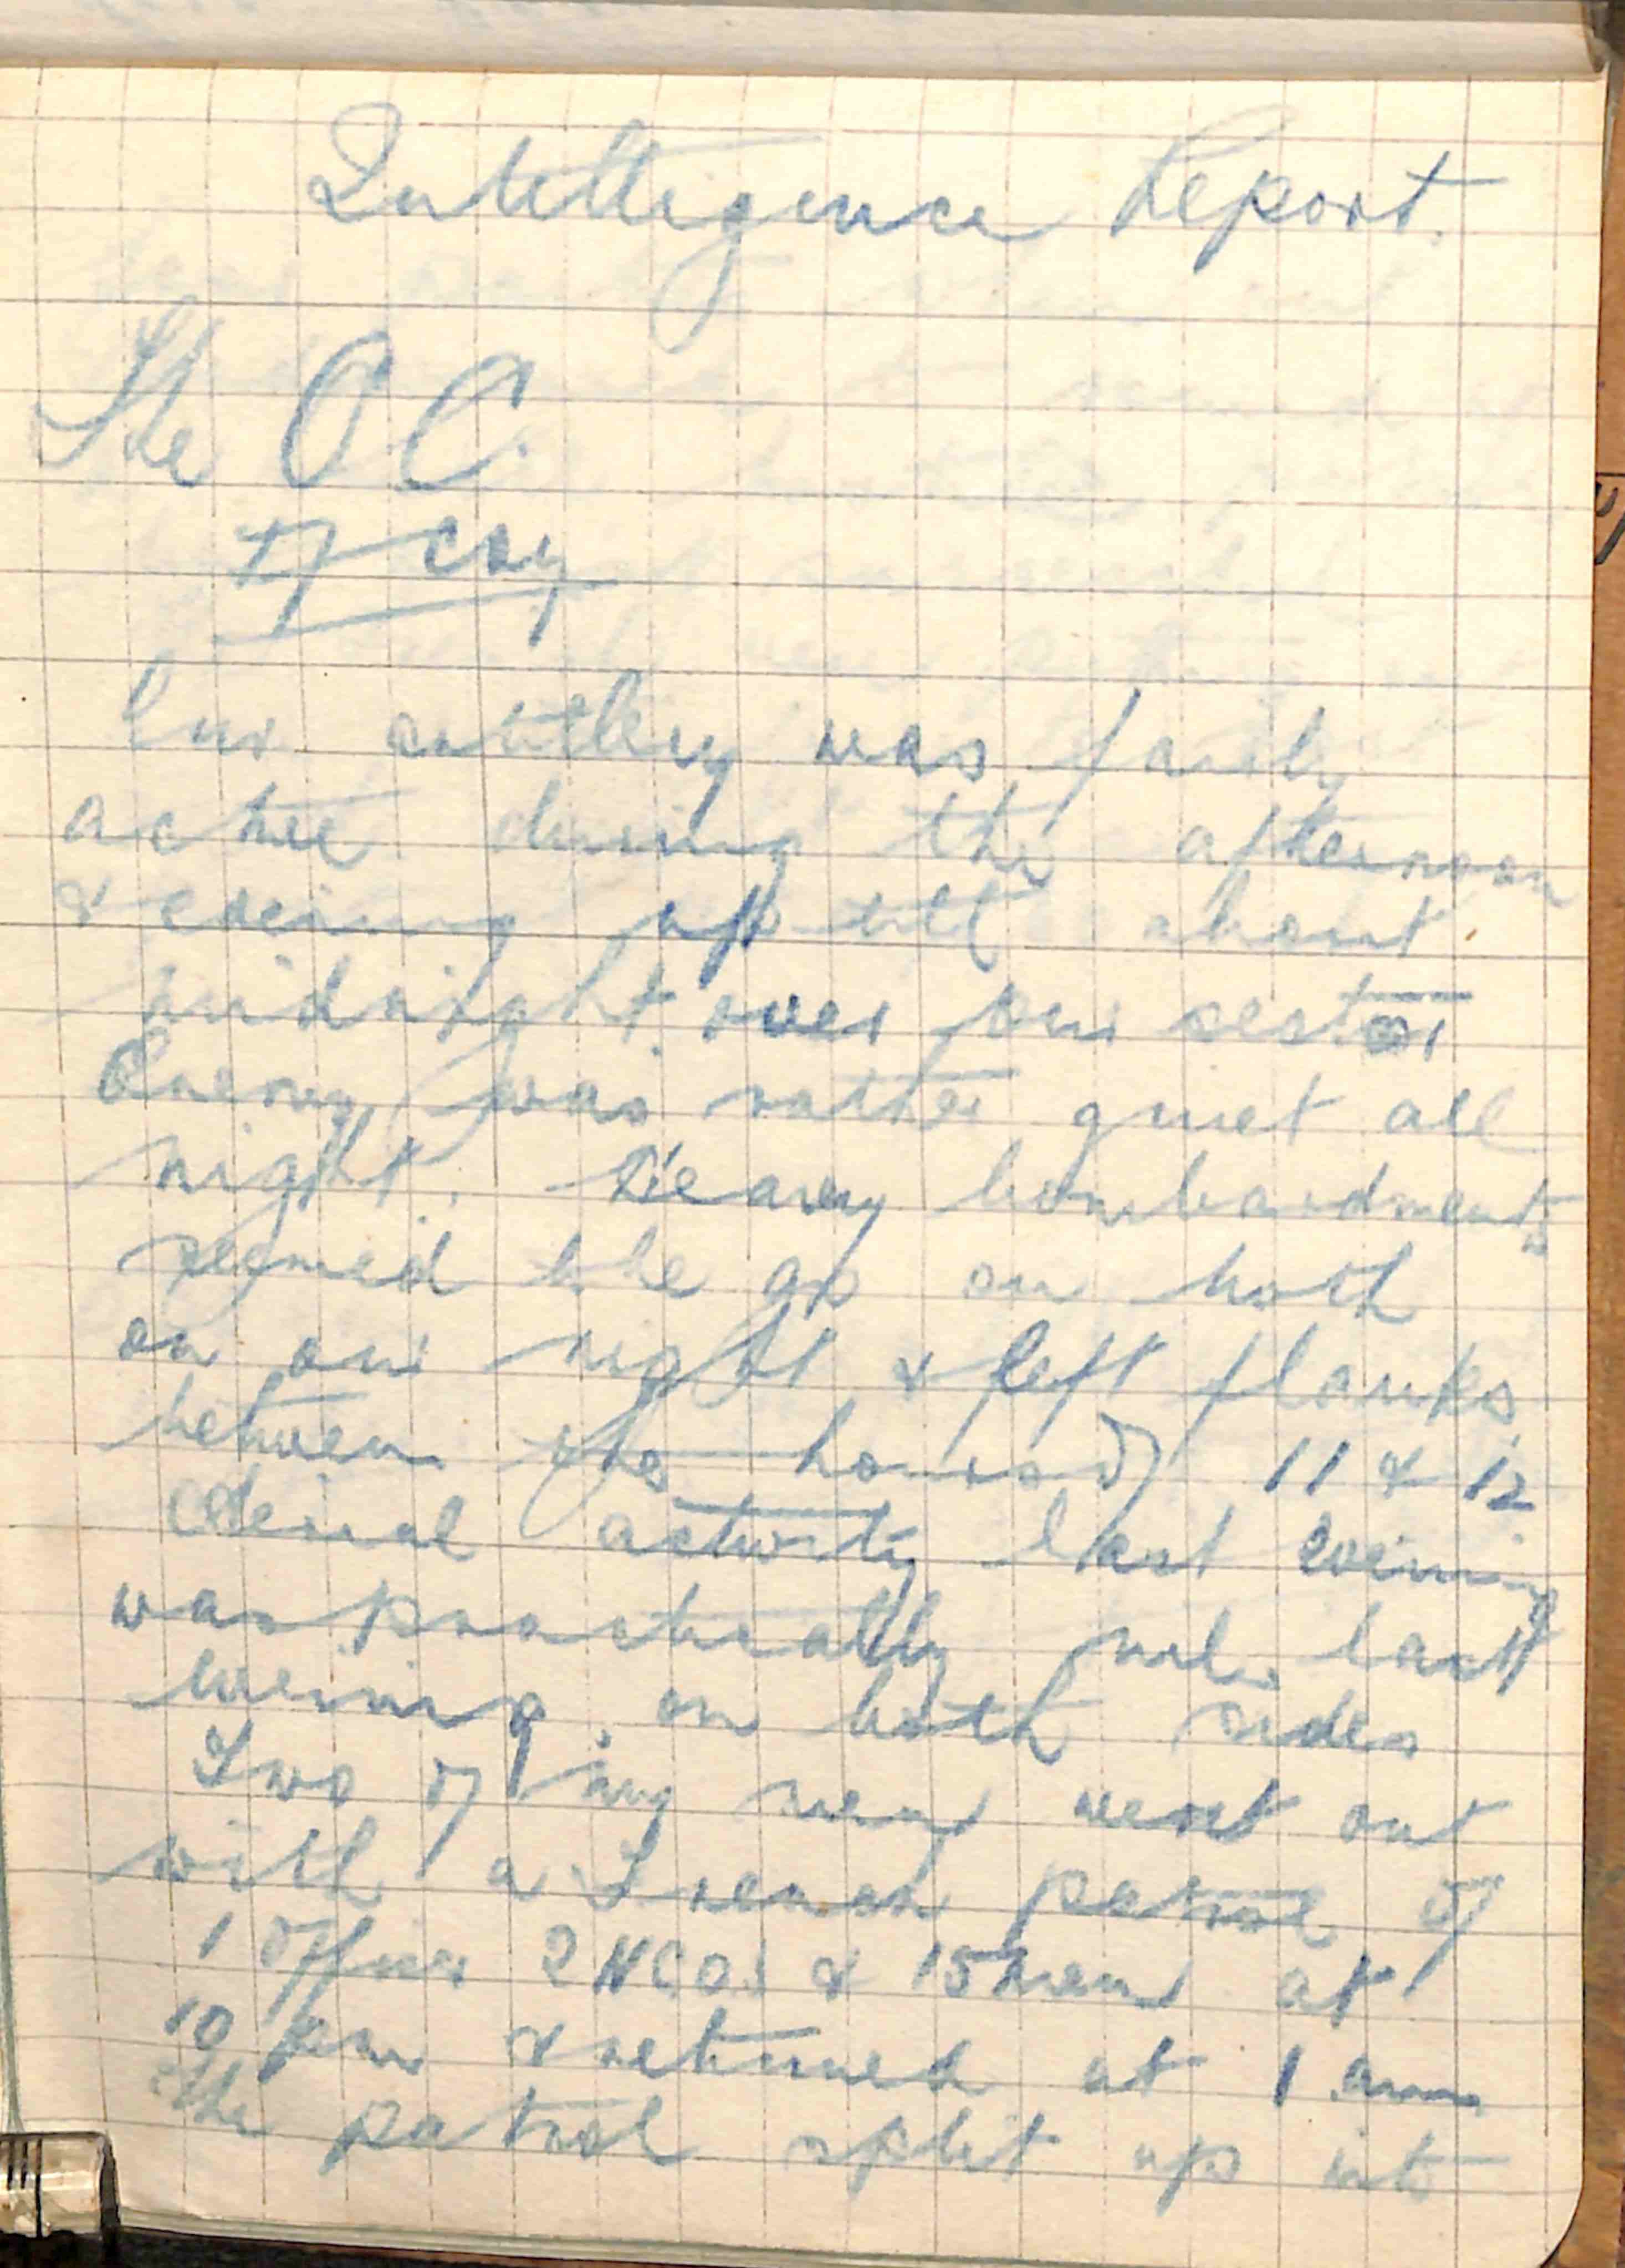 Intelligence Report.
The O.C.
Coy
Our artillery was fairly
active during the afternoon
& evening up till about
midnight over our sector
Enemy was rather quiet all
night. Heavy bombardments
seemed to be go on both
on our right & left flanks
between the hours of 11 & 12
Aerial activity last evening
was practically nil. last
evening on both sides
Two of my men went out
with a French patrol of
1 Officer 2 NCOs & 15 men at
10 pm & returned at 1 am
The patrol split up into